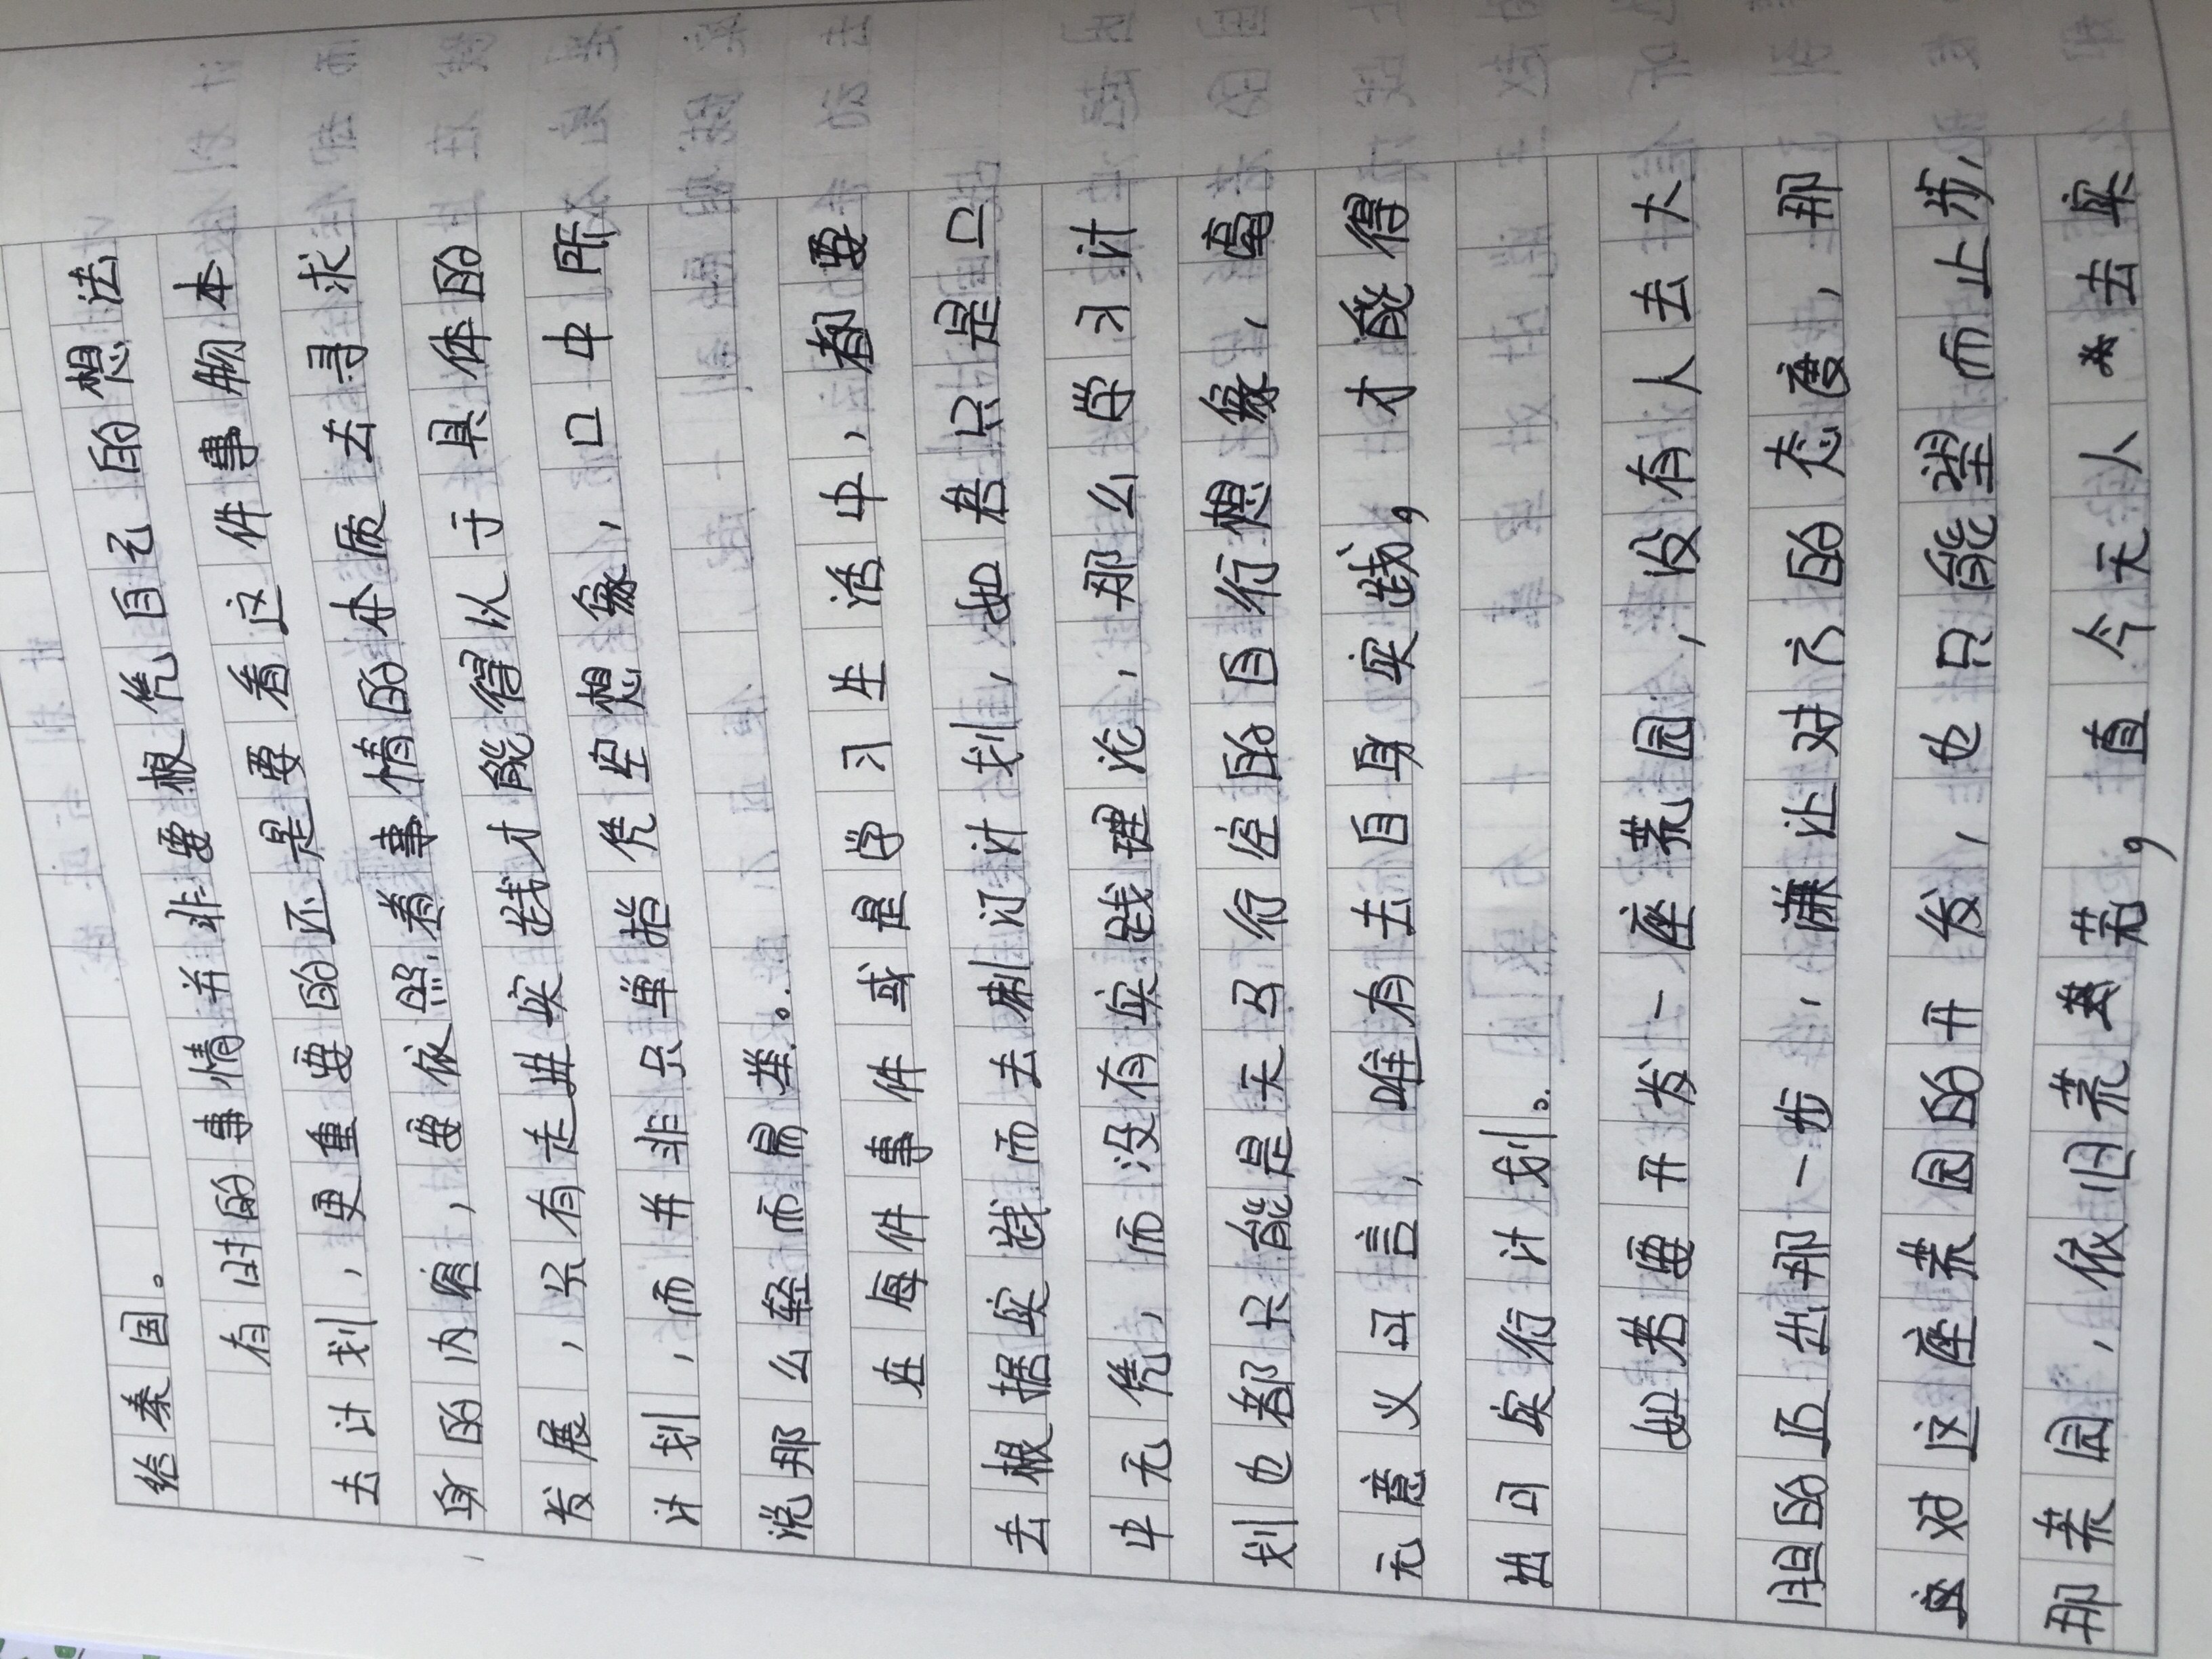 给秦国。
有时的事情并非要根凭自己的想法
去计划，更重要的还是要看这件事物本
身的内容，要依照着事情的本质去寻求
发展，只有走进实践才能得以于具体的
计划，而并非只单指凭空想象，口中所
说那么轻而易举。
在每件事件或是学习生活中，都要
去根据实践而去制订计划，如若只是口
中无凭，而没有实践理论，那么学习计
划也都只能是天马行空的自行想象，毫
无意义可言，唯有去自身实践，才能得
出可实行计划。
如若要开发一座荒园，没有人去大
胆的迈出那一步，谦让对方的态度，那
对这座荒园的开发，也只能望而止步，
那荒园，依旧荒芜，直今无人去实